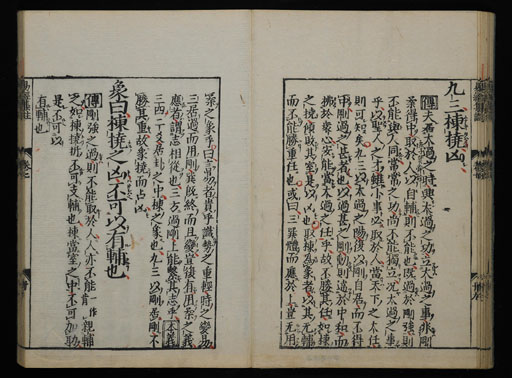 九三棟橈凶
傳夫居大過之時興大過之功立大過之事非剛
柔得中取於人以自輔則不能也既過於剛強則
不能與人同常常之功尚不能獨立况大過之事
乎以聖人之才雖小事必取於人當天下之大任
則可知矣九三以大過之陽復以剛自居而不得
中剛過之甚者也以過甚之剛動則違於中和而
拂於衆心安能當大過之任乎故不勝其任如棟
之橈傾敗其室是以凶也取棟為象者以其无輔
而不能勝重任也或曰三巽體而應於上豈无用
柔之象乎曰言易者貴乎識勢之重輕時之變易
三居過而用剛巽既終而且變豈復有用柔之義
應者謂志相從也三方過剛上能繫其志乎本義
三四二爻居卦之中棟之象也九三以剛居剛不
勝其重故象橈而占凶
象曰棟橈之凶不可以有輔也
傳剛強之過則不能取於人人亦不能一作肯親輔
之如棟橈折不可支輔也棟當室之中不可加助
是不可以
有輔也